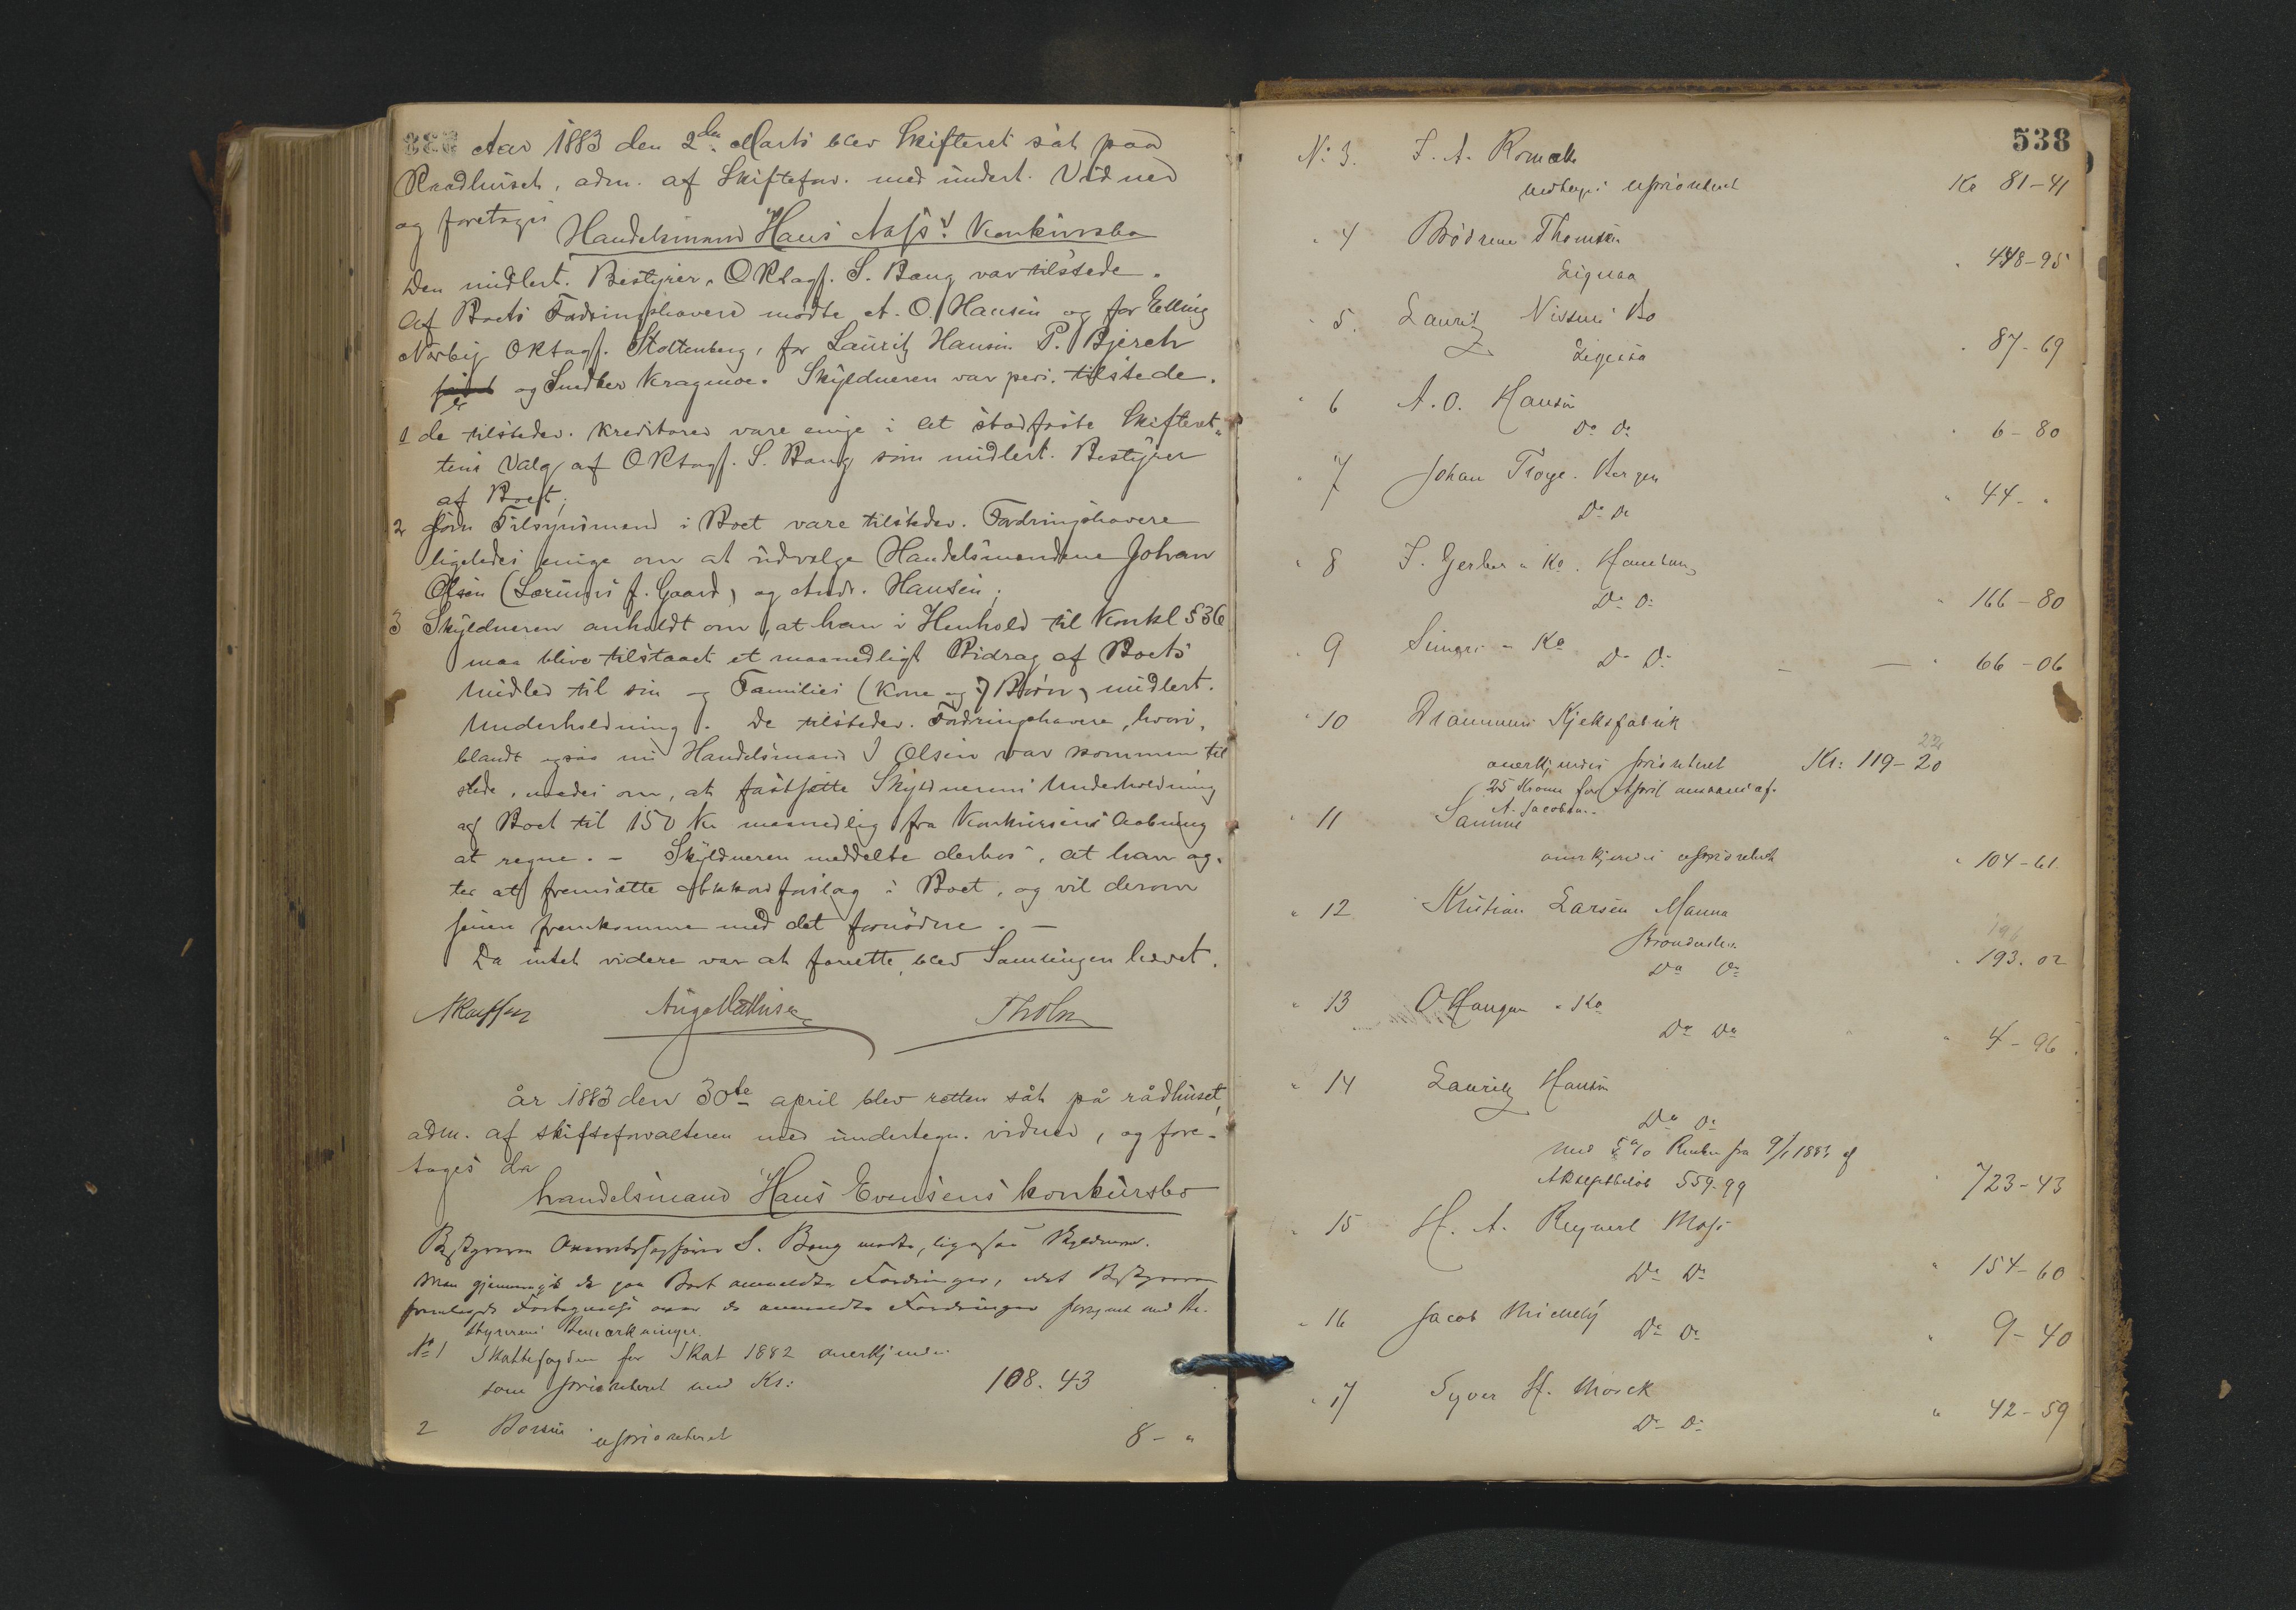 Aar 1883 den 2den Marts blev Skifteret sat paa
Raadhuset, adm. af Skiftefor. med undert. Vidner
og foretoges
Handelsmand Hans Konkursbo
Den midlert. Bestyrer, ORsagf. S. Bang var tilstede.
Af Boets Fordringshavere mødte A. O. Hansen og for Elling
Nærby ORsagf. Stoltenberg, for Lauritz Hansen P. Bjerch
og Snedker Kragmoe. Skyldneren var pers. tilstede.
1 de tilstedev. Kreditorer vare enige i at stadfæste Skifteret-
tens Valg af ORsagf. S. Bang som midlert. Bestyrer
af Boet;
2 som Tilsynsmænd i Boet vare tilstedev. Fordringshavere
ligeledes enige om at udvælge Handelsmændene Johan
Olsen ( f. Gaard) og Andr. Hansen;
3 Skyldneren anholdt om, at han i Henhold til Konkl § 36
maa blive tilstaaet et maanedligt Bidrag af Boets
Midler til sin og Families (Kone og 7 Børn) midlert.
Underholdning. De tilstedev. Fordringshavere, hvori-
blandt ogsaa nu Handelsmand J Olsen var kommen til
stede, enedes om, at fastsætte Skyldnerens Underholdning
af Boet til 150 Kr maanedlig fra Konkursens Aabning
at regne. - Skyldneren meddelte derhos, at han ag-
ter at fremsætte Akkordforslag i Boet, og vil derom
senere fremkomme med det fornødne. -
Da intet videre var at foretette, blev Samlingen hævet.
Tholm
år 1883 den 30te april blev retten sat på rådhuset,
adm. af skifteforvalteren med undertegn. vidner, og fore-
toges da
handelsmand Hans Evensens konkursbo
Bestyreren Overretssagfører S. Bang mødte, ligesaa Skyldneren.
Man gjennemgik de paa Boet anmeldte Fordringer, idet Bestyreren
fremlagde Fortegnelse over de anmeldte Fordringer forsynet med Be-
styrerens Bemærkninger.
No 1 Skattefogden for Skat 1882 anerkjendes
som prioriteret med Kr: 108. 43
2 uprioriteret 8 - "
538
No 3. J. A.
uprioriteret Kr 81-41
" 4 Brødrene Thomsen
Ligesaa " 448-95
" 5. Lauritz Nissens Bo
Ligesaa " 87-69
" 6 A. O. Hansen
Do Do " 6-80
" 7 Johan Troye. Bergen
Do Do " 44- "
" 8 J. Gerber & Ko. Hamburg
Do Do " 166-80
" 9 & Ko
Do Do - — " 66-06
" 10 Drammens Kjeksfabrik
anerkjendes prioriteret Kr: 119-20
25 Kroner for April
A. Jacobsen.
" 11 Samme
anerkjendes uprioriteret " 104-61.
" 12 Kristian Larsen
Do Do " 193. 02
" 13 O Haugen & Ko
Do Do " 4-96.
" 14 Lauritz Hansen
Do Do
med 5% Renter fra 9/1 1883 af
559-99 " 723-43
" 15 H. A. Reynert Moss
Do Do " 154-60
" 16 Jacob
Do Do " 9-40
" 17 Syver H.
Do Do " 42-59